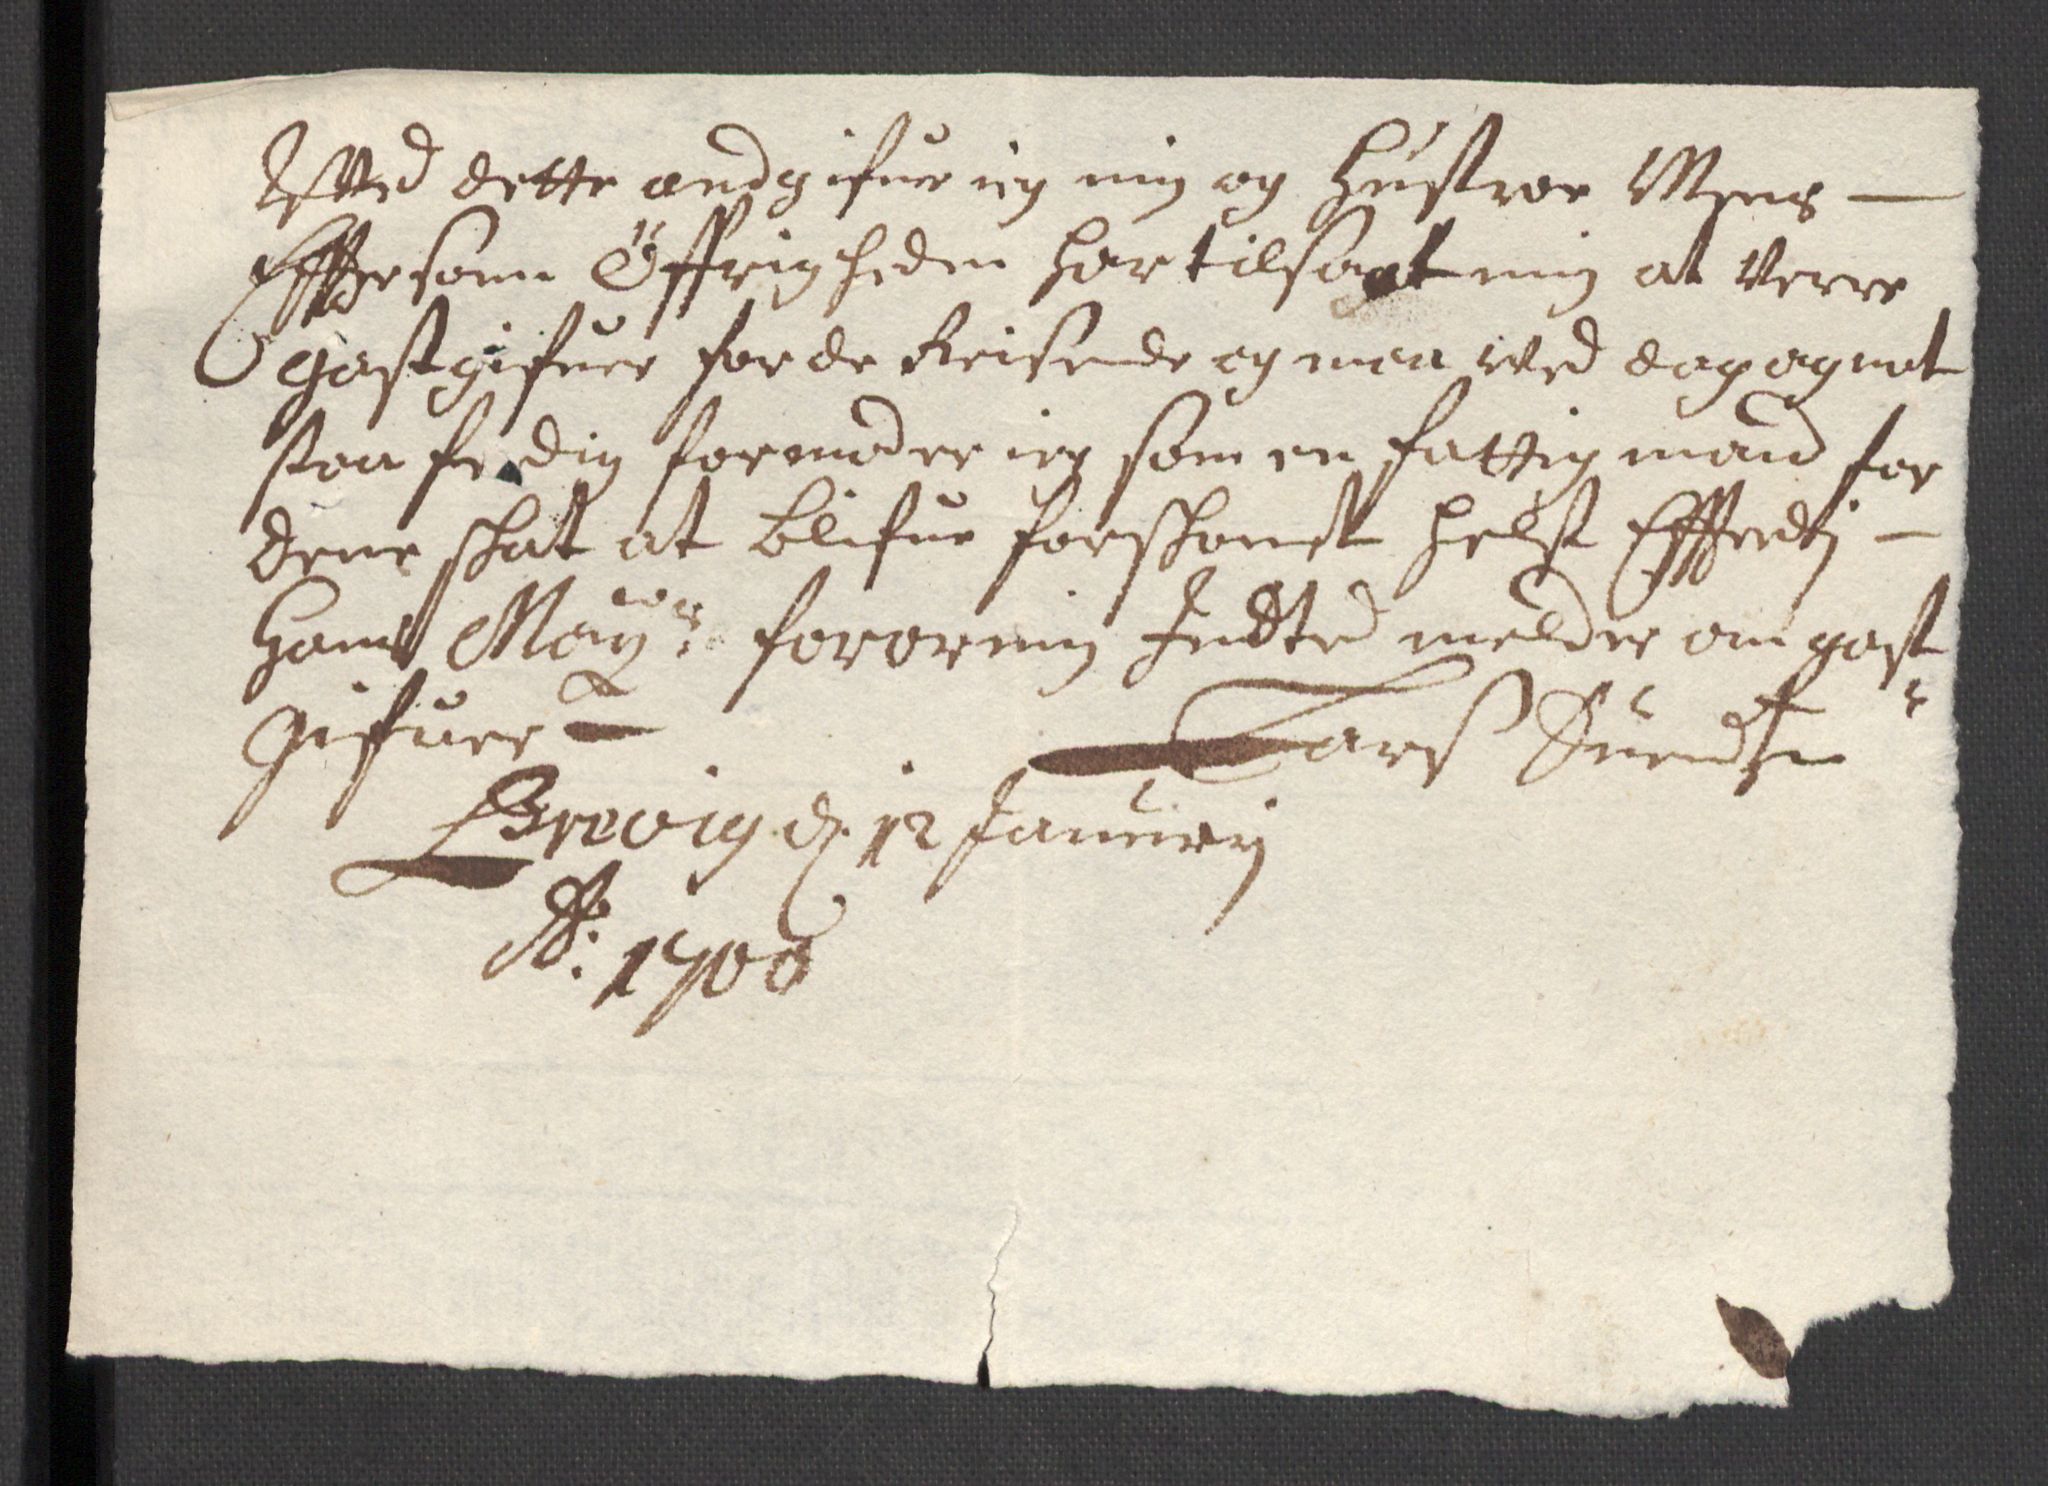 Wed dette andgifuer ieg mig og Hustroe Mens —
Efftersom Öffrigheden har tilsagt mig at Verre
gastgifuer for de Reisende og maa wed dag og nat
staa ferdig formoder ieg som en fattig mand for
dene skat at blifue forskonet helst Effterdj —
Hans Mayts: forordning Indted melder om gast
gifuer —
Lars Suendsen
Brevig d. 12 Januarij
Ao: 1700